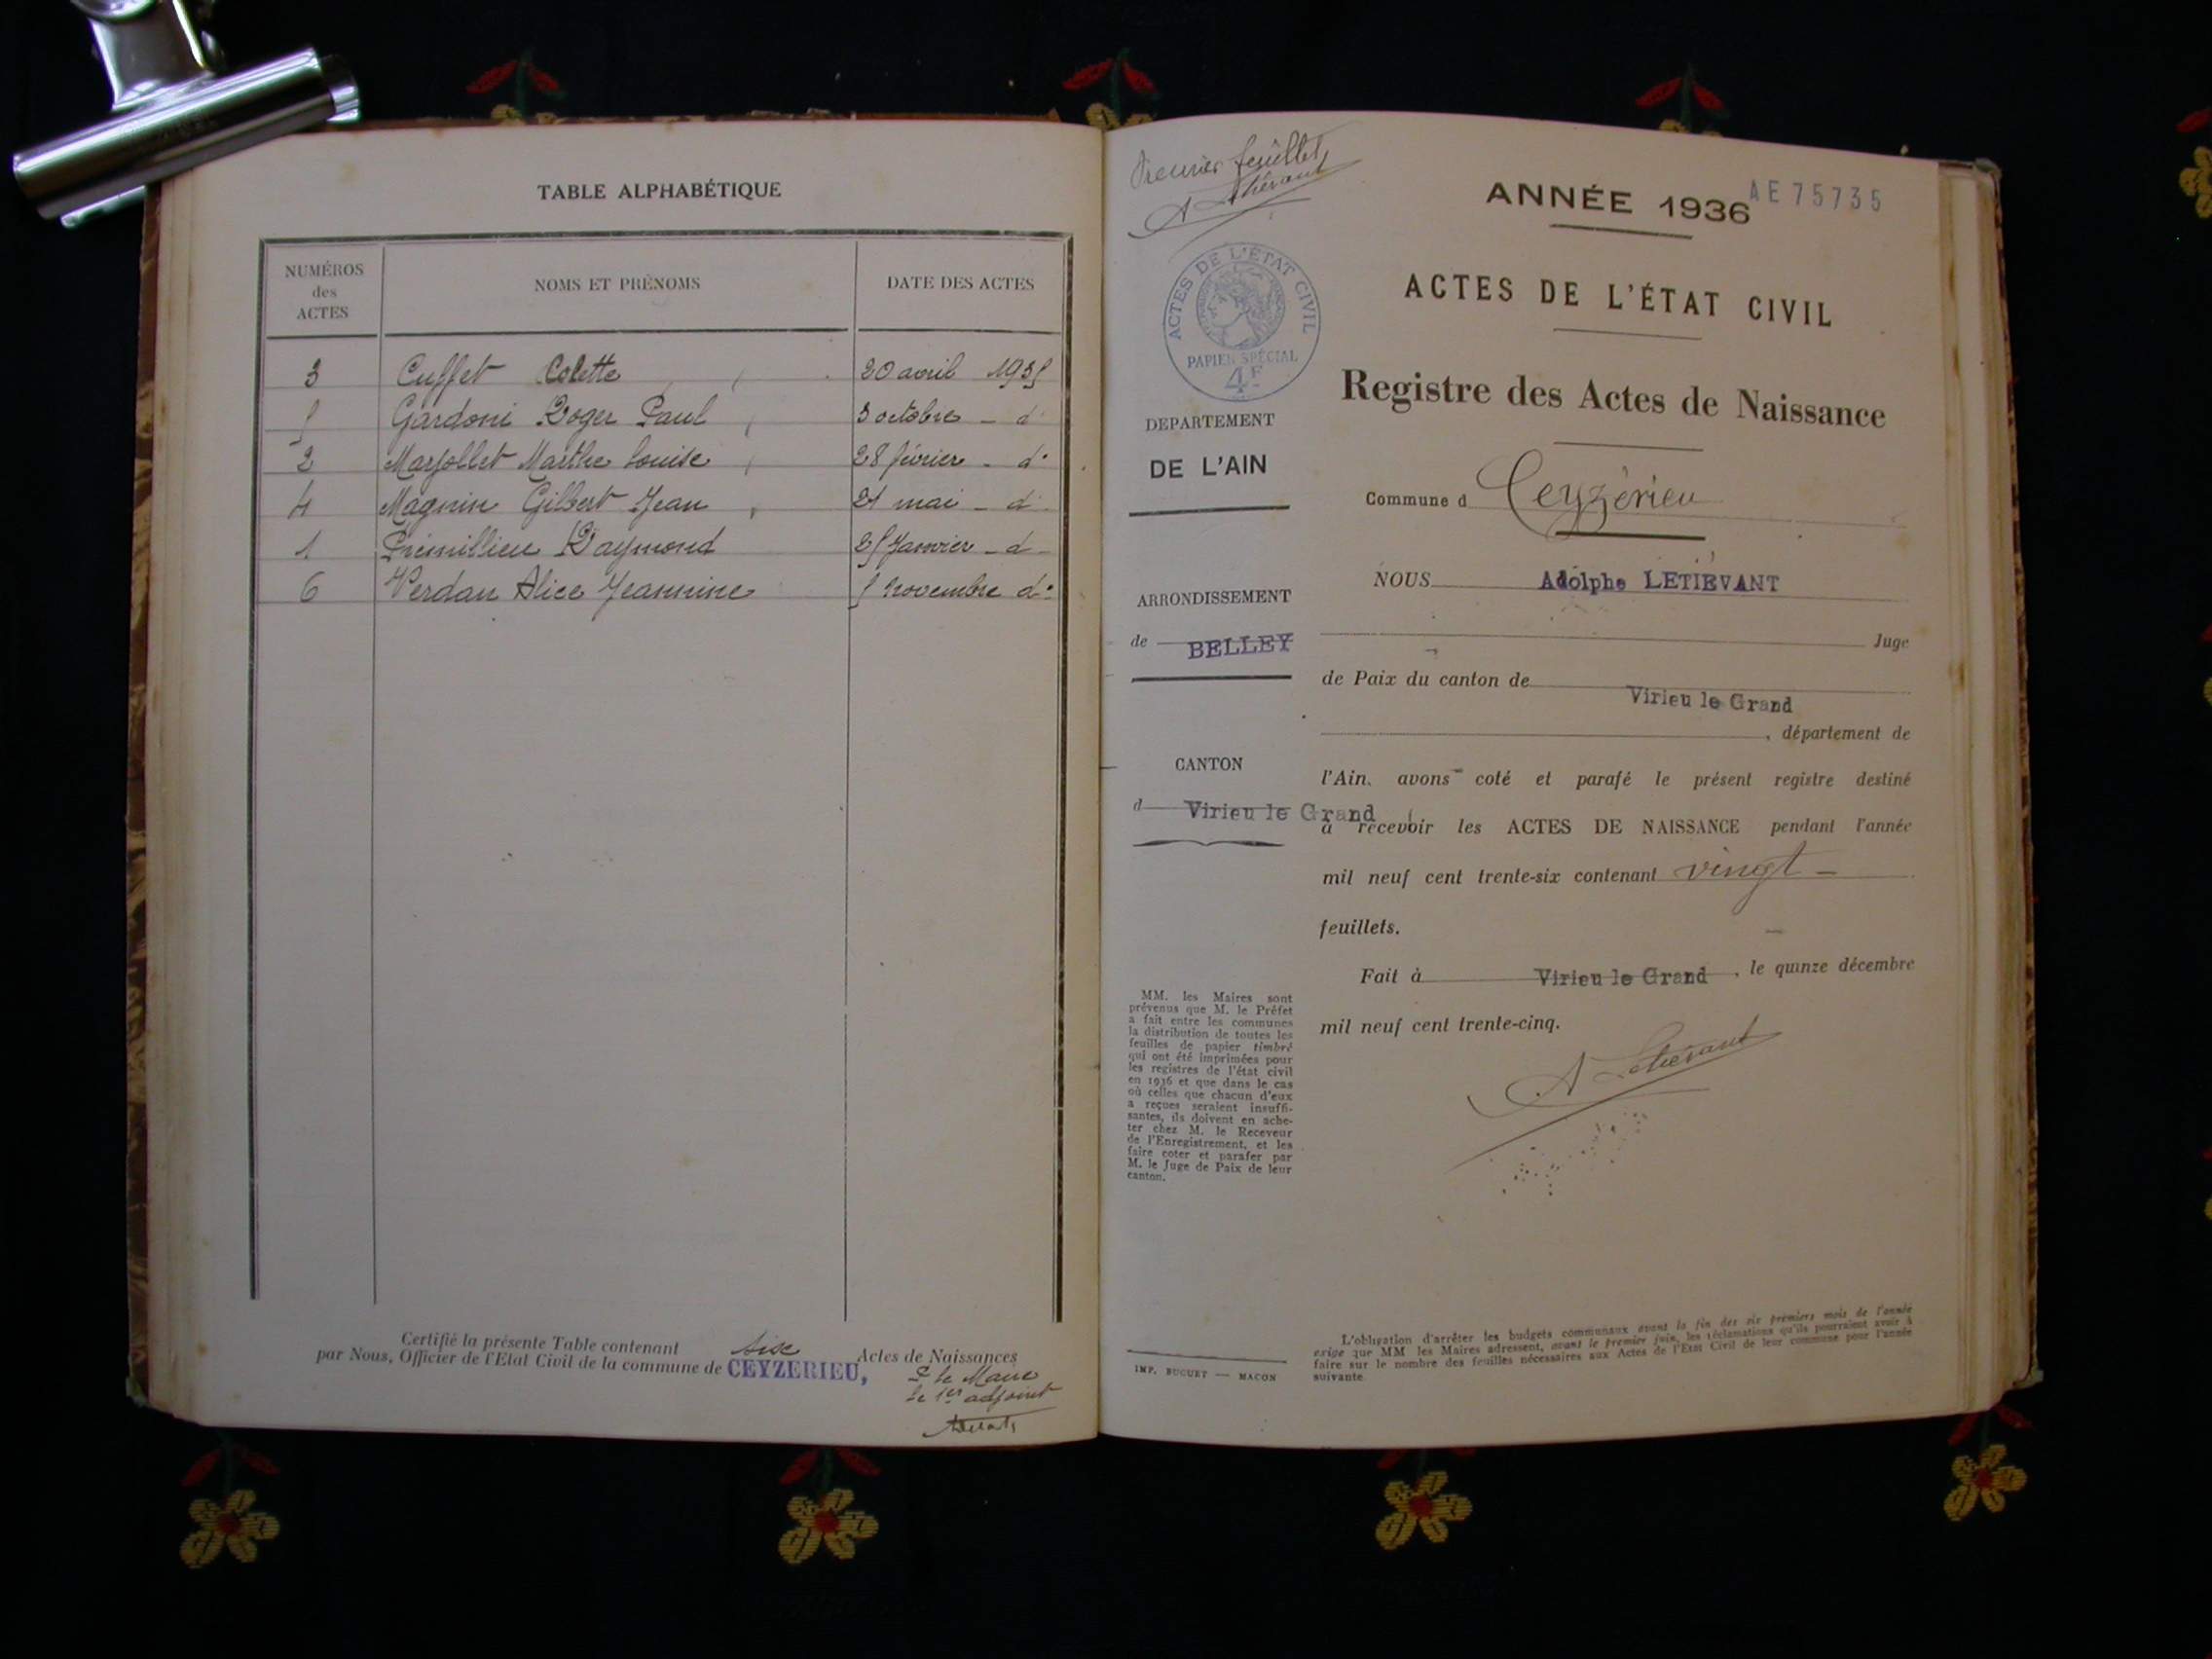 TABLE ALPHABÉTIQUE
NUMÉROS
des
ACTES
NOMS ET PRÉNOMS
DATE DES ACTES
3 Cuffet Colette 20 avril 1935
5 Gardoni Roger Paul 3 octobre - d°
2 Marjollet Marthe Louise 28 février - d°
4 Magnin Gilbert Jean 21 mai - d°
1 Prémillieu Raymond 25 Janvier - d°
6 Verdan Alice Jeannine 5 novembre d°
Certifié la présente Table contenant Six Actes de Naissances
par Nous, Officier de l'Etat Civil de la commune de CEYZERIEU,
P. le Maire
le 1er adjoint
Premier feuillet
A Letiévant
ANNÉE 1936
AE 75735
ACTES DE L'ÉTAT CIVIL
PAPIER SPÉCIAL
4F
ACTES DE L'ÉTAT CIVIL
Registre des Actes de Naissance
DEPARTEMENT
DE L'AIN
Commune d Ceyzérieu
NOUS Adolphe LETIEVANT
ARRONDISSEMENT
de BELLEY
Juge
de Paix du canton de Virieu le Grand
, département de
CANTON
d Virieu le Grand
l'Ain, avons coté et parafé le présent registre destiné
à recevoir les ACTES DE NAISSANCE pendant l'année
mil neuf cent trente-six contenant vingt -
feuillets.
Fait à Virieu le Grand, le quinze décembre
mil neuf cent trente-cinq.
A Letiévant
MM. les Maires sont
prévenus que M. le Préfet
a fait entre les communes
la distribution de toutes les
feuilles de papier timbré
qui ont été imprimées pour
les registres de l'état civil
en 1936 et que dans le cas
où celles que chacun d'eux
a reçues seraient insuffi-
santes, ils doivent en ache-
ter chez M. le Receveur
de l'Enregistrement, et les
faire coter et parafer par
M. le Juge de Paix de leur
canton.
IMP. BUGUET — MACON
L'obligation d'arrêter les budgets communaux avant la fin des six premiers mois de l'année
exige que MM les Maires adressent, avant le premier juin, les réclamations qu'ils pourraient avoir à
faire sur le nombre des feuilles nécessaires aux Actes de l'État Civil de leur commune pour l'année
suivante